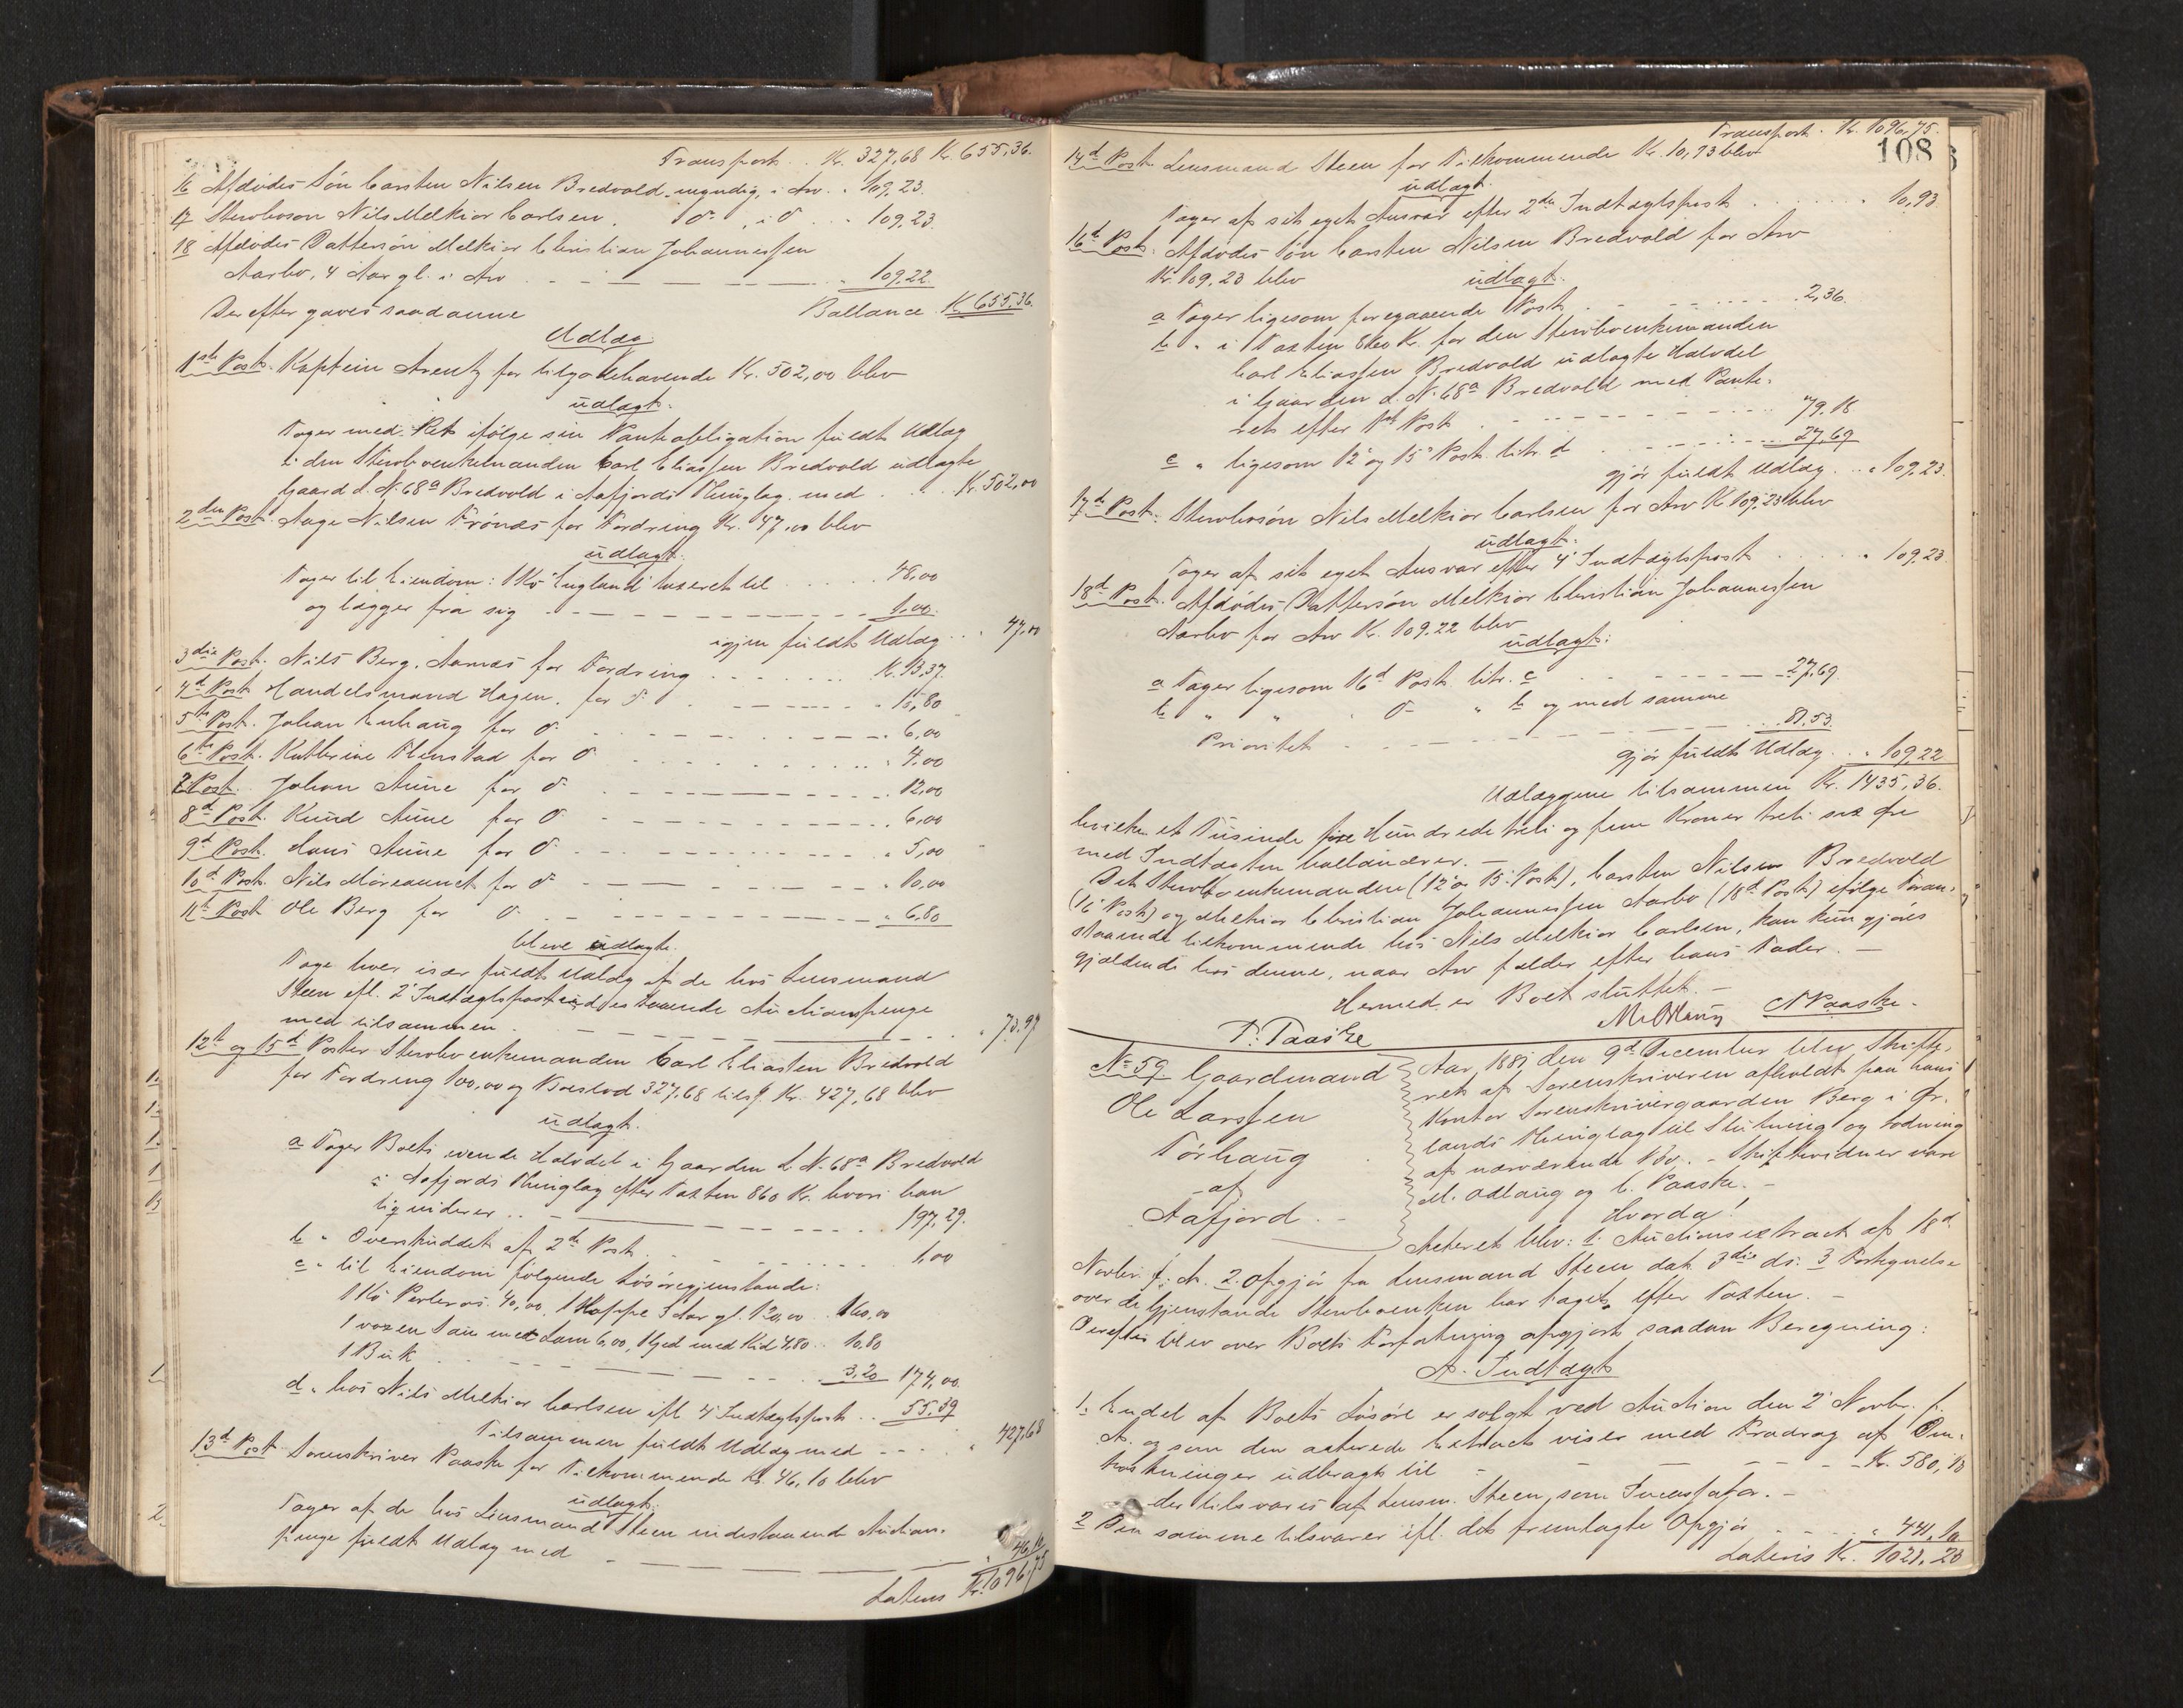 Transport .. Kr. 327,68 Kr. 655,36.
16 Afdødes Søn Carsten Nilsen Bredvold, myndig, i Arv . " 109,23.
17 Stervbosøn Nils Melkior Carlsen, d° , i d° .. - 109,23.
18 Afdødes Dattersøn Melkior Christian Johannessen
Aarbo, 4 Aar gl. i Arv - - - - - " 109,22.
Derefter gaves saadanne Ballance K 655,36.
Udlæg
1ste Post. Kaptein Arentz for tilgodehavende Kr. 502,00 blev
udlagt.
Tager med Ret ifølge sin Pantobligation fuldt Udlæg
i den Stervboenkemanden Carl Eliassen Bredvold udlagte
Gaard L. N. 68a Bredvold i Aafjords Thinglag med . . . Kr. 502,00
2den Post. Aage Nilsen Frønæs for Fordring Kr. 47,00 blev
udlagt.
Tager til Eiendom: 1 Ko "England" taxeret til . . . . . 48,00
og lægger fra sig - - - - - - - - 1,00.
igjen fuldt Udlæg . . . 47,00
3die Post. Nils Berg, Aarnæs for Fordring . . . . . . . K. 13,37.
4d Post Handelsmand Hagen, for d° . - - - - . - 15,80
5te Post. Johan Enhaug for d° . . - - - - - . 6,00
6te Post. Kathrine Flenstad for d° . . . . . . . . . . 4,00
7 Post. Johan Aune for d° . . - - - - - - . 12,00
8d Post. Knud Aune for d° - - - - - - - . 6,00
9d Post. Hans Aune for d° - - - - - - - . 5,00
10d Post. Nils Moreaunet for d° - - - - - - . 10,00
11te Post Ole Berg for d° . - - - - - - - . 6,80
bleve udlagte.
Tage hver især fuldt Udlæg af de hos Lensmand
Steen ifl. 2' Indtægtspost indestaaende Auctionspenge
med tilsammen . - - - - - - - . " 73,97
12te og 15d Poster Stervboenkemanden Carl Eliassen Bredvold
for Fordring 100,00 og Boeslod 327,68 tils. Kr. 427,68 blev
udlagt.
a Tager Boets eiende Halvdel i Gaarden L. N. 68a Bredvold
i Aafjords Thinglag efter Taxten 860 Kr. hvori han
liqviderer . . - - - - - - - . . . 197,29.
b " Overskuddet af 2de Post. - . . . . . . . 1,00
c " til Eiendom følgende Løsøregjenstande:
1 Ko Perleros. 40,00, 1 Hoppe 3 Aar gl. 120,00 . . 160,00
1 voxen Sau med Lam 6,00, 1 Gjed med Kid 4,80 . . 10,80
1 Buk - - - - - - - - . . 3,20 174,00.
d " hos Nils Melkior Carlsen ifl. 4' Indtægtspost . . 55,39
Tilsammen fuldt Udlæg med - - . . " 427,68
13d Post. Sorenskriver Paaske for Tilkommende Kr. 46,10 blev
udlagt.
Tager af de hos Lensmand Steen indestaaende Auctions-
penge fuldt Udlæg med - - - - - - - " 46,10
Lateris Kr. 1096,75
Transport. Kr. 1096,75.
108
14d Post. Lensmand Steen for Tilkommende Kr. 10,93 blev
udlagt.
Tager af sit eget Ansvar efter 2de Indtægtspost . . . . . . . " 10,93
16d Post. Afdødes Søn Carsten Nilsen Bredvold for Arv
Kr. 109,23 blev udlagt.
a Tager ligesom foregaaende Post . - - - . . . . . 2,36.
b " i Taxten 860 K. for den Stervboenkemanden
Carl Eliassen Bredvold udlagte Halvdel
i Gaarden L. N. 68a Bredvold med Pante-
ret efter 1ste Post . - - - - - - - . . 79,18
c " ligesom 12' og 15' Post litr. d . . - - - - . . . 27,69
gjør fuldt Udlæg . . . " 109,23.
17d Post. Stervbosøn Nils Melkior Carlsen for Arv K. 109,23 blev
udlagt.
Tager af sit eget Ansvar efter 4' Indtægtspost . . . . . " 109,23.
18d Post. Afdødes Dattersøn Melkior Christian Johannessen
Aarbo for Arv K. 109,22 blev
udlagt.
a Tager ligesom 16d Post litr. c . - - - - - - 27,69.
b " " d° " b og med samme
Prioritet . - - - - - - - - . . . 81,53.
gjør fuldt Udlæg . . . " 109,22
Udlæggene tilsammen Kr. 1435,36.
hvilken et Tusinde fire Hundrede treti og fem Kroner treti sex Øre
med Indtægten ballancerer. —
Det Stervboenkemanden (12' og 15' Post), Carsten Nilsen Bredvold
(16' Post) og Melkior Christian Johannessen Aarbo (18d Post) ifølge Foran-
staaende tilkommende hos Nils Melkior Carlsen, kan kun gjøres
gjældende hos denne, naar Arv falder efter hans Fader. —
Hermed er Boet sluttet. —
P. Paaske M. Odlaug N Paaske.
N° 59 Gaardmand
Ole Larssen
Tørhaug
af
Aafjord. —
Aar 1881, den 9d December blev Skifte-
ret af Sorenskriveren afholdt paa hans
Kontor Sorenskrivergaarden Berg i Ør-
lands Thinglag til Slutning og Lodning
af nærværende Bo. – Skiftevidner vare
M. Odlaug og C. Paaske. —
Hvorda!
Acteret blev: 1. Auctionsextract af 18d
Novbr. f. A. 2. Opgjør fra Lensmand Steen dat. 3die ds. 3 Fortegnelse
over de Gjenstande Stervboenken har taget efter Taxten. —
Derefter blev over Boets Forfatning opgjort saadan Beregning:
A. Indtægt
1. Endel af Boets Løsøre er solgt ved Auction den 2' Novbr. f.
A. og som den acterede Extract viser med Fradrag af Om-
kostninger udbragt til - - - - - - - Kr. 580,18
der tilsvares af Lensm. Steen, som Incassator. —
2 Den samme tilsvarer ifl. det fremlagte Opgjør - - . . " 441,10
Lateris Kr. 1021,28